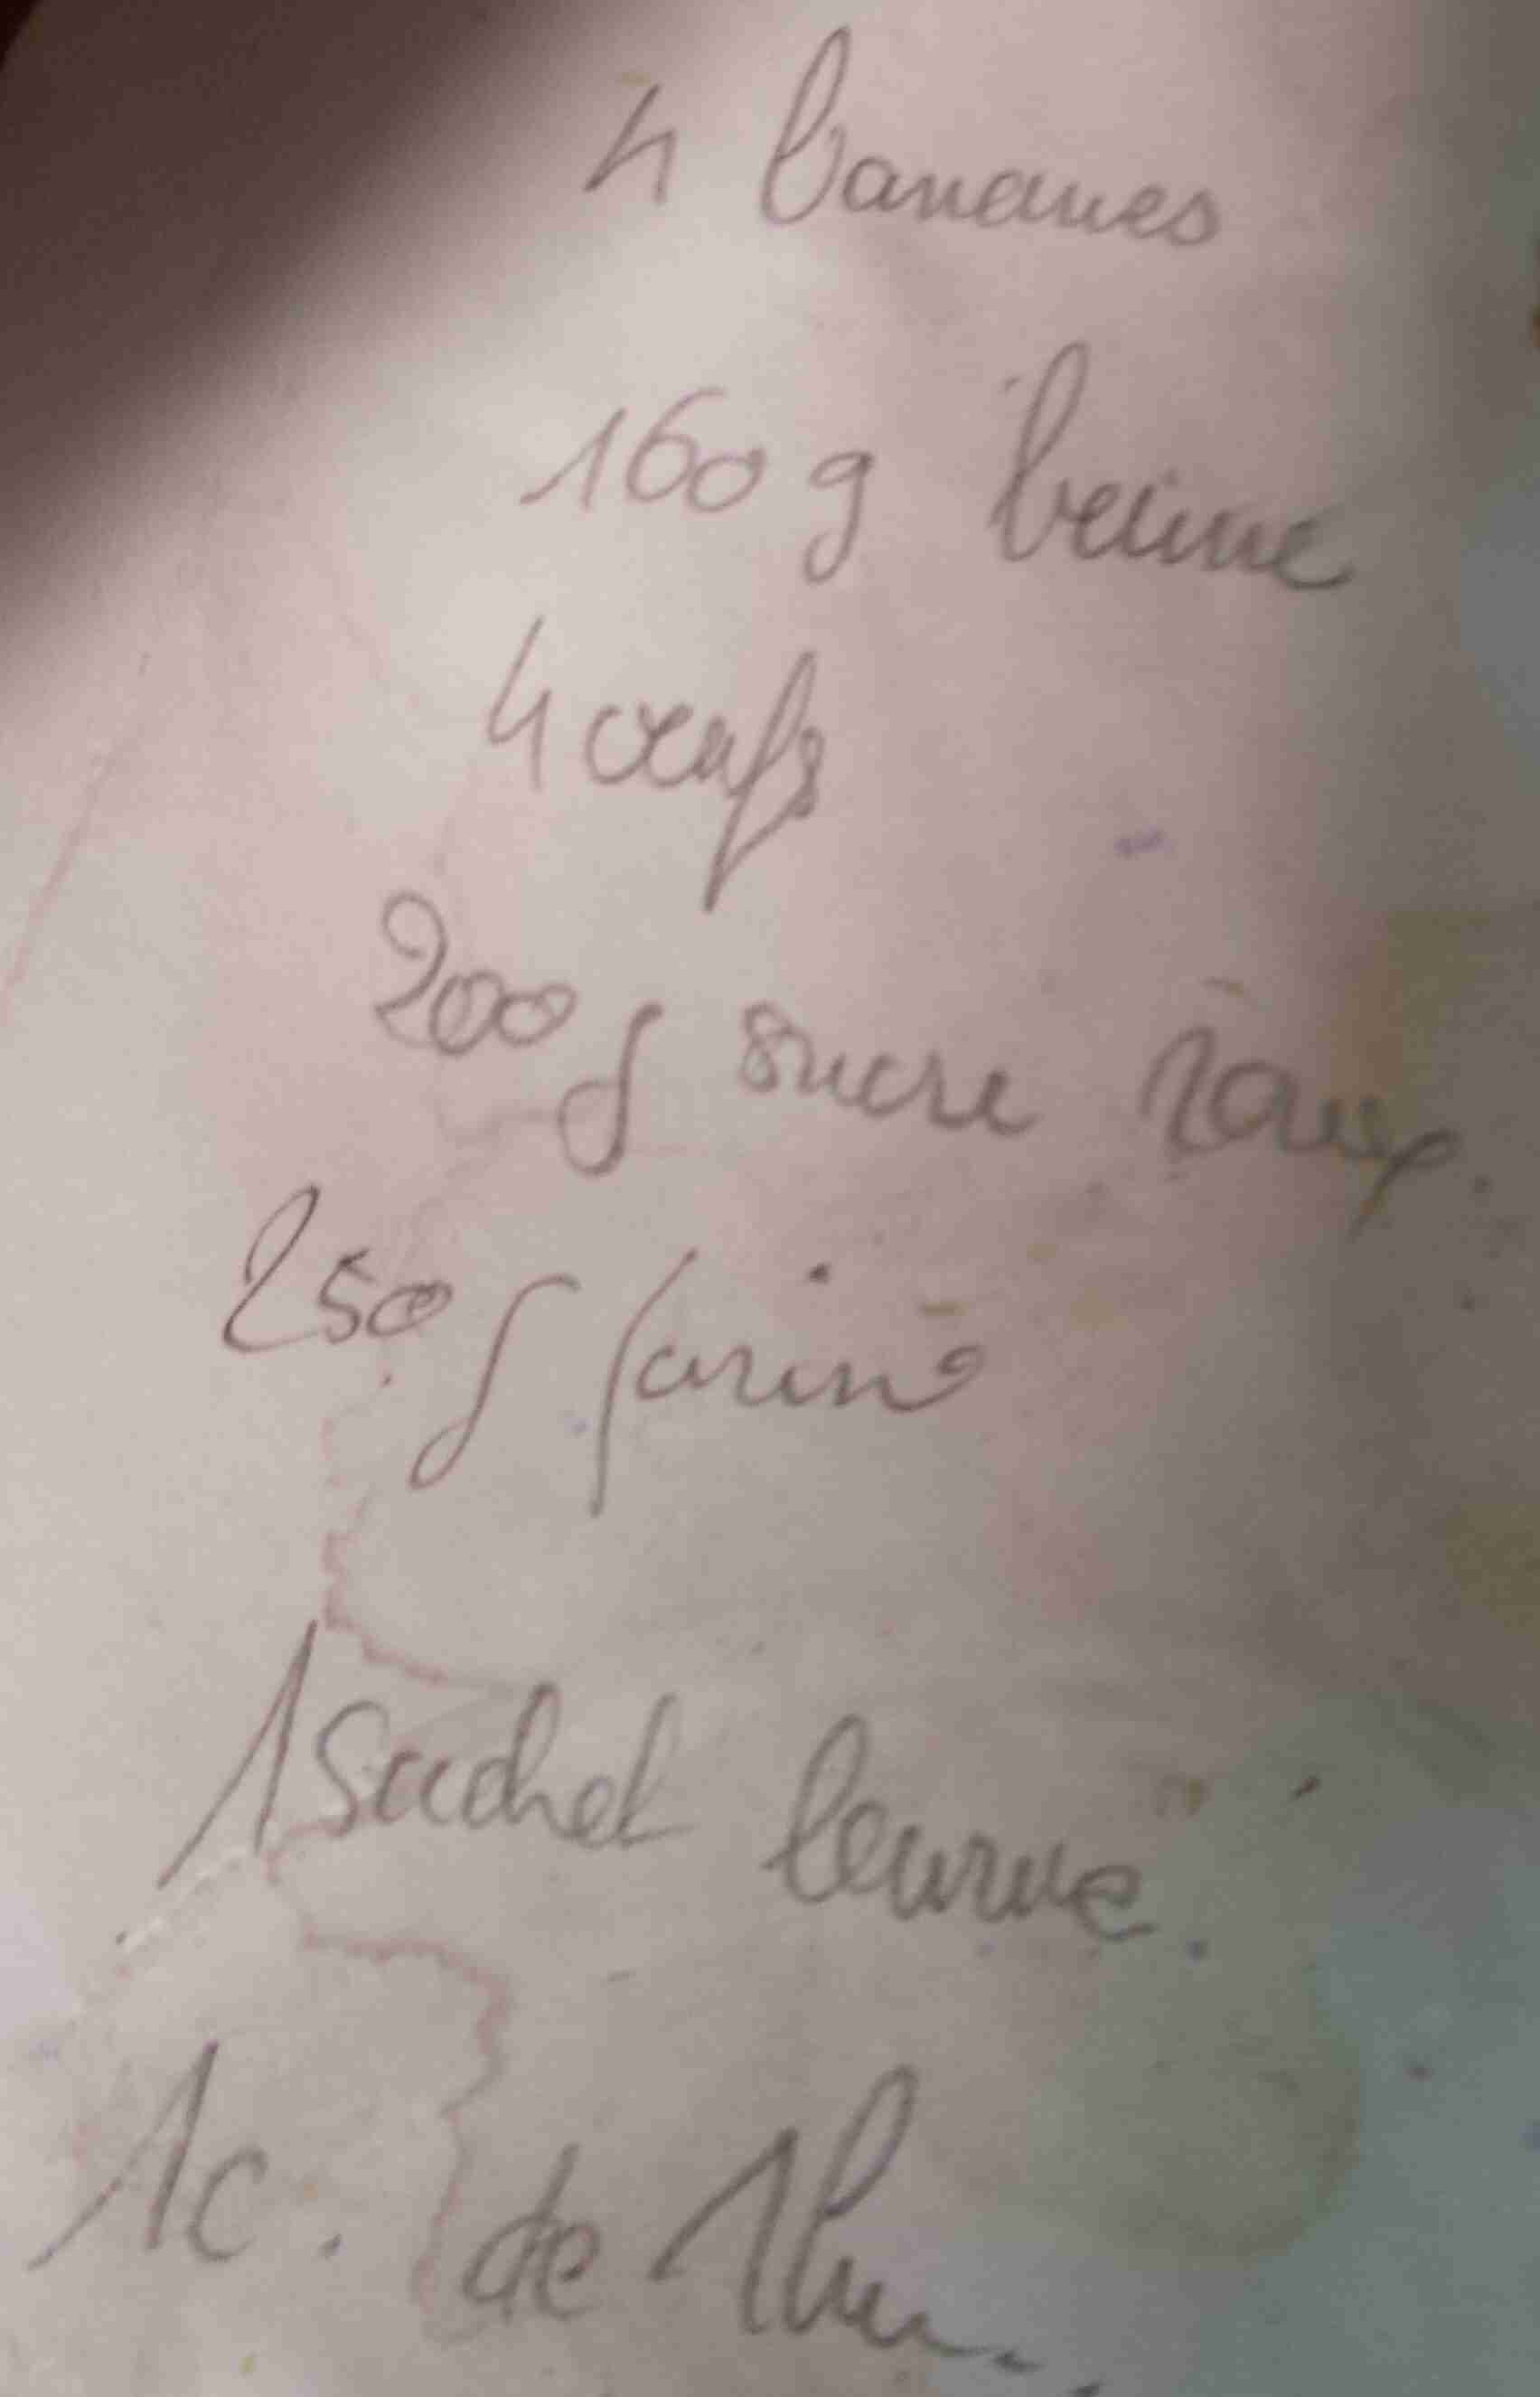 4 bananes
160 g beurre
4 oeufs
200 g sucre roux.
250 g farine
1 Sachet levure.
1 c. de Rhum